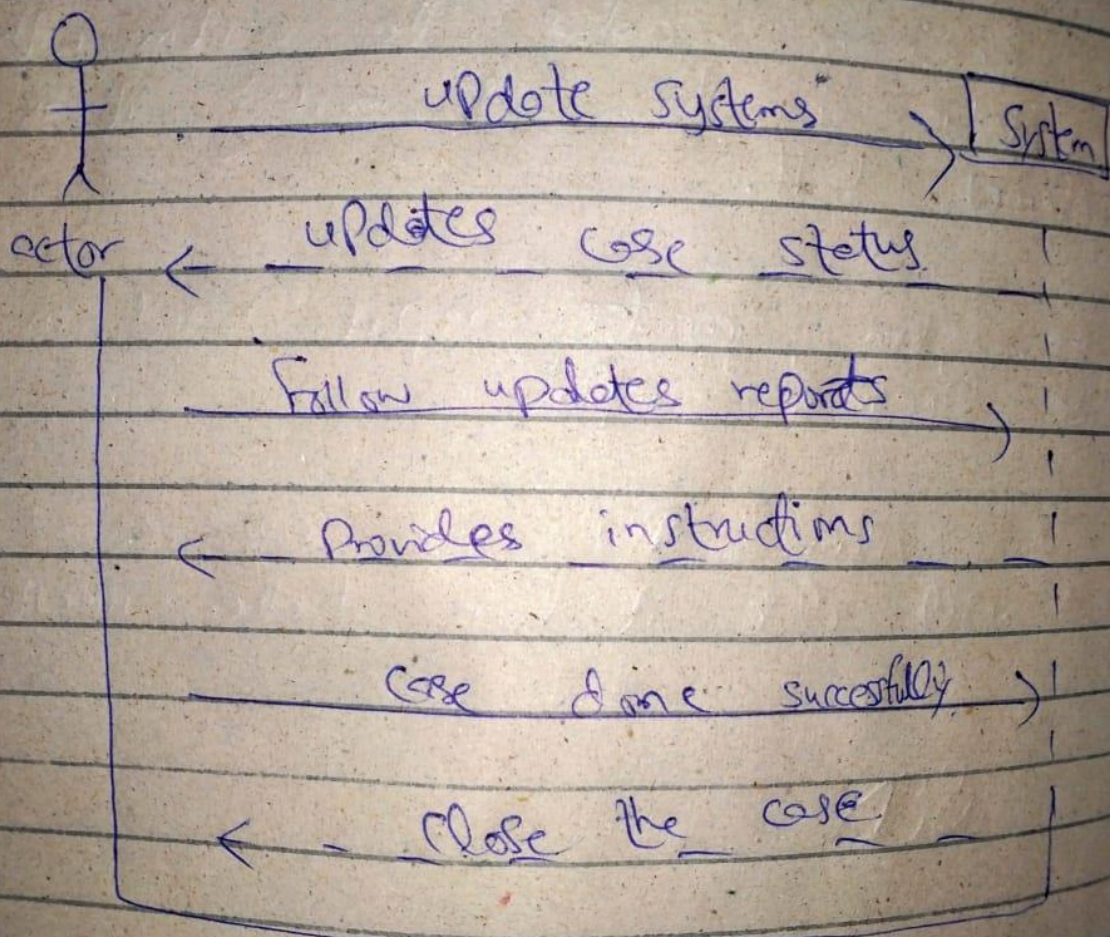 update systems
System
actor
updates case status
Follow updates reports
Provides instructions
Case done successfully
Close the case